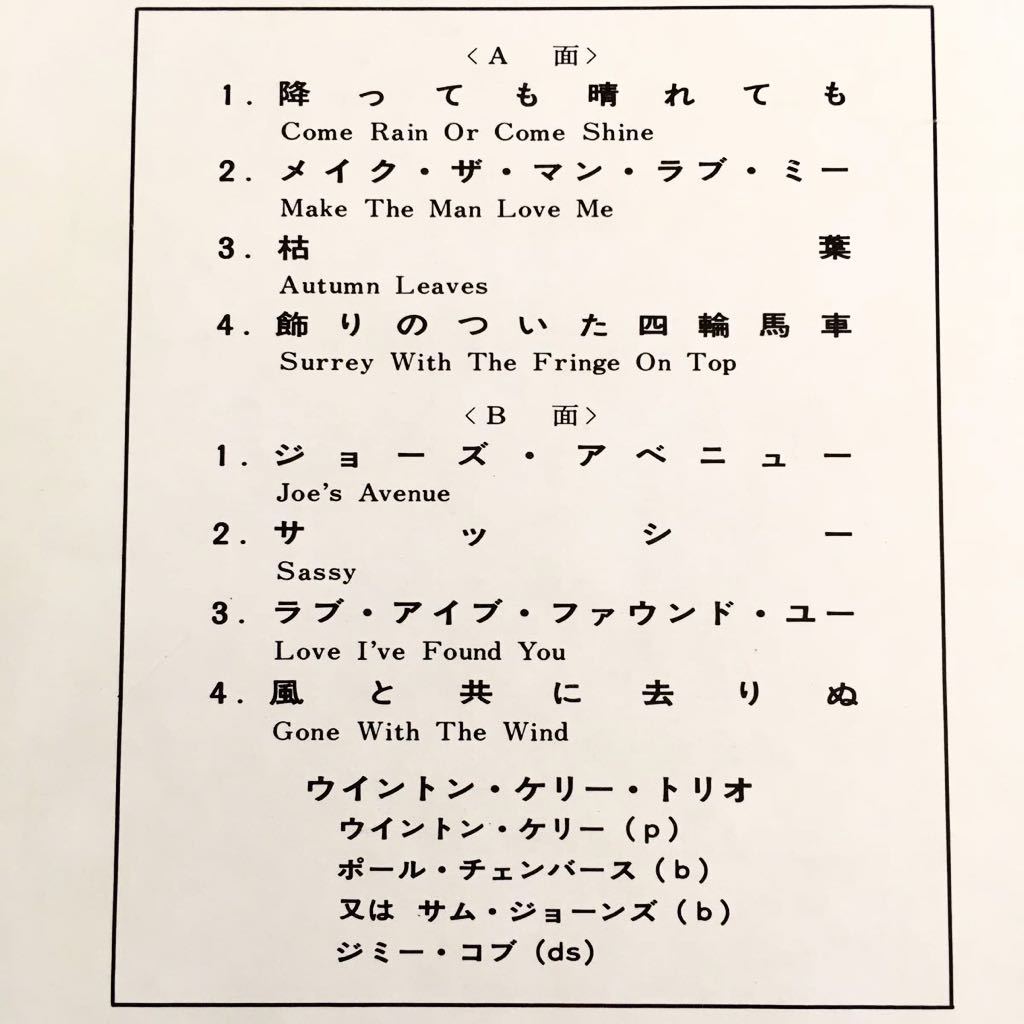 〈A 面〉
1. 降っても晴れても
Come Rain Or Come Shine
2. メイク・ザ・マン・ラブ・ミー
Make The Man Love Me
3. 枯葉
Autumn Leaves
4. 飾りのついた四輪馬車
Surrey With The Fringe On Top
〈B 面〉
1. ジョーズ・アベニュー
Joe's Avenue
2. サッシー
Sassy
3. ラブ・アイブ・ファウンド・ユー
Love I've Found You
4. 風と共に去りぬ
Gone With The Wind
ウイントン・ケリー・トリオ
ウイントン・ケリー(p)
ポール・チェンバース(b)
又は サム・ジョーンズ(b)
ジミー・コブ(ds)